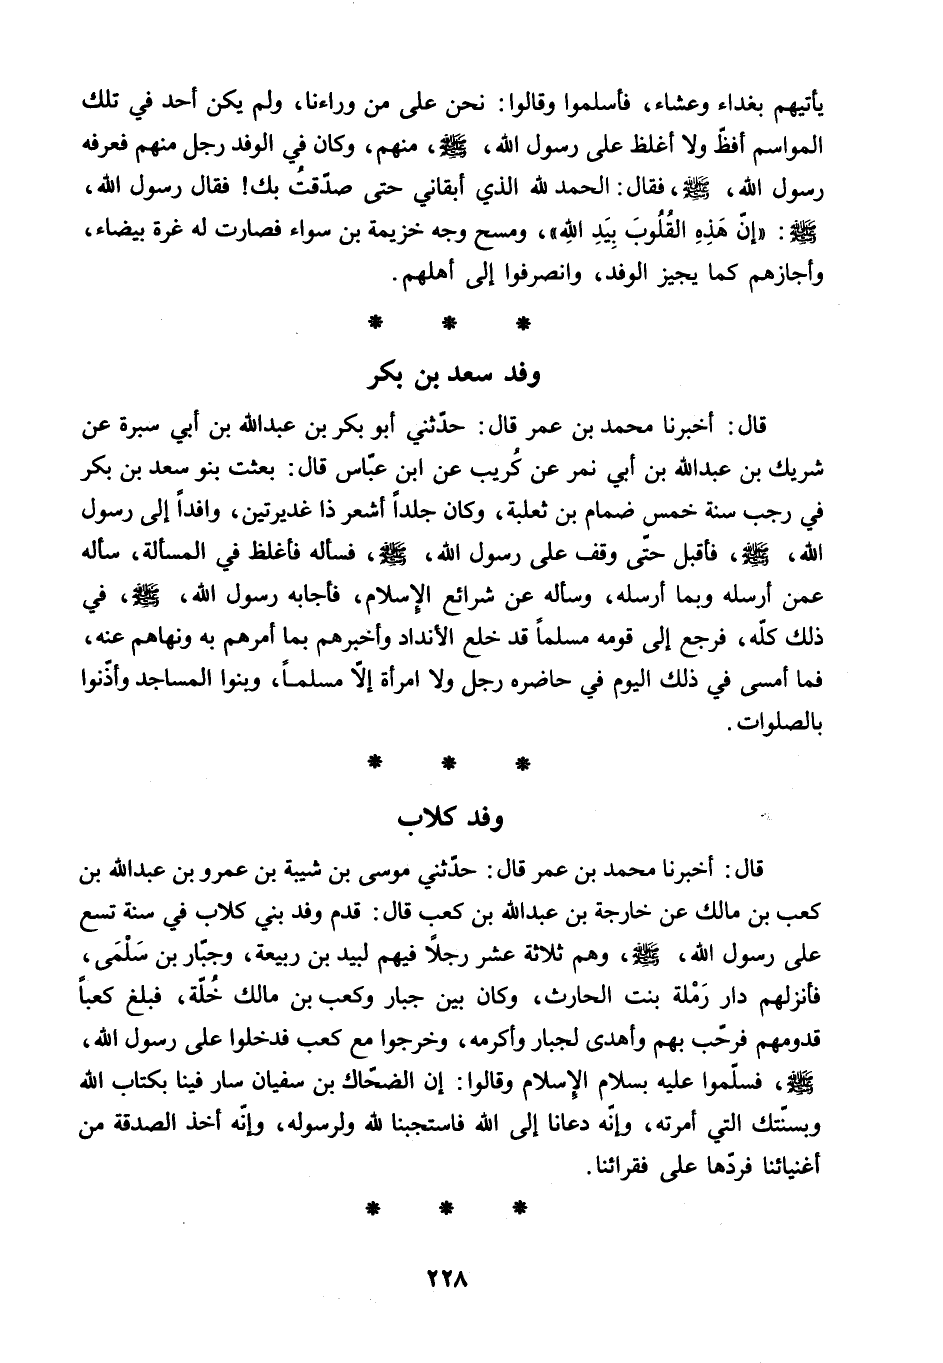 يأتيهم بغداء وعشاء، فأسلموا وقالوا: نحن على من وراءنا، ولم يكن أحد في تلك
المواسم أفظّ ولا أغلظ على رسول الله، ﷺ، منهم، وكان في الوفد رجل منهم فعرفه
رسول الله، ﷺ، فقال: الحمد لله الذي أبقاني حتى صدّقتُ بك! فقال رسول الله،
ﷺ: «إنّ هَذِهِ القُلُوبَ بِيَدِ اللهِ»، ومسح وجه خزيمة بن سواء فصارت له غرة بيضاء،
وأجازهم كما يجيز الوفد، وانصرفوا إلى أهلهم.
* * *
وفد سعد بن بكر
قال: أخبرنا محمد بن عمر قال: حدّثني أبو بكر بن عبدالله بن أبي سبرة عن
شريك بن عبدالله بن أبي نمر عن كُريب عن ابن عبّاس قال: بعثت بنو سعد بن بكر
في رجب سنة خمس ضمام بن ثعلبة، وكان جلداً أشعر ذا غديرتين، وافداً إلى رسول
الله، ﷺ، فأقبل حتّى وقف على رسول الله، ﷺ، فسأله فأغلظ في المسألة، سأله
عمن أرسله وبما أرسله، وسأله عن شرائع الإسلام، فأجابه رسول الله، ﷺ، في
ذلك كلّه، فرجع إلى قومه مسلماً قد خلع الأنداد وأخبرهم بما أمرهم به ونهاهم عنه،
فما أمسى في ذلك اليوم في حاضره رجل ولا امرأة إلّا مسلماً، وبنوا المساجد وأذّنوا
بالصلوات.
* * *
وفد كلاب
قال: أخبرنا محمد بن عمر قال: حدّثني موسى بن شيبة بن عمرو بن عبدالله بن
كعب بن مالك عن خارجة بن عبدالله بن كعب قال: قدم وفد بني كلاب في سنة تسع
على رسول الله، ﷺ، وهم ثلاثة عشر رجلاً فيهم لبيد بن ربيعة، وجبّار بن سَلْمَى،
فأنزلهم دار رَمْلة بنت الحارث، وكان بين جبار وكعب بن مالك خُلّة، فبلغ كعباً
قدومهم فرحّب بهم وأهدى لجبار وأكرمه، وخرجوا مع كعب فدخلوا على رسول الله،
ﷺ، فسلّموا عليه بسلام الإسلام وقالوا: إن الضحّاك بن سفيان سار فينا بكتاب الله
وبسنّتك التي أمرته، وإنّه دعانا إلى الله فاستجبنا لله ولرسوله، وإنّه أخذ الصدقة من
أغنيائنا فردّها على فقرائنا.
* * *
٢٢٨